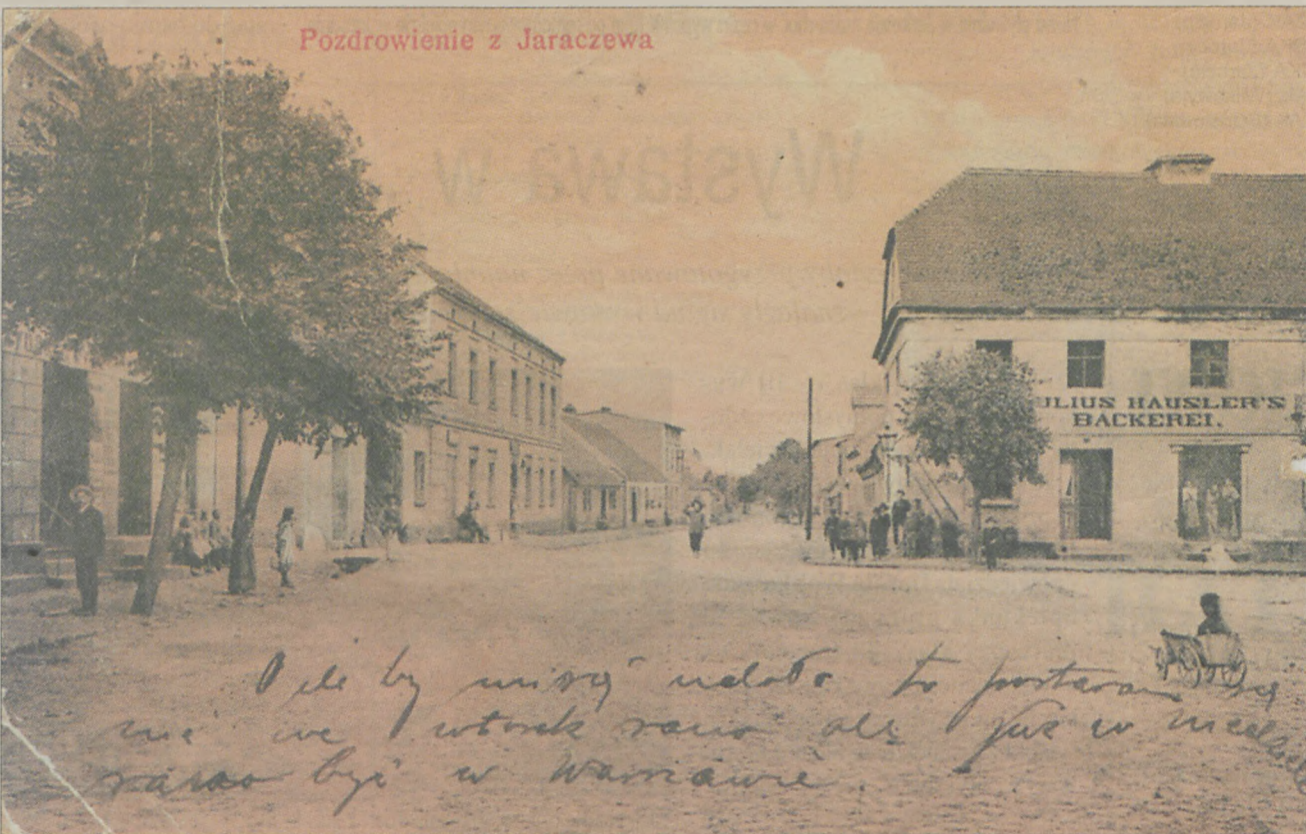 Pozdrowienie z Jaraczewa
Wystawa w
ULIUS HAUSLER'S
BACKEREI.
O ile by mi się udało to postaram się
nie we wtorek rano ale już w niedzielę
rano być w Warszawie